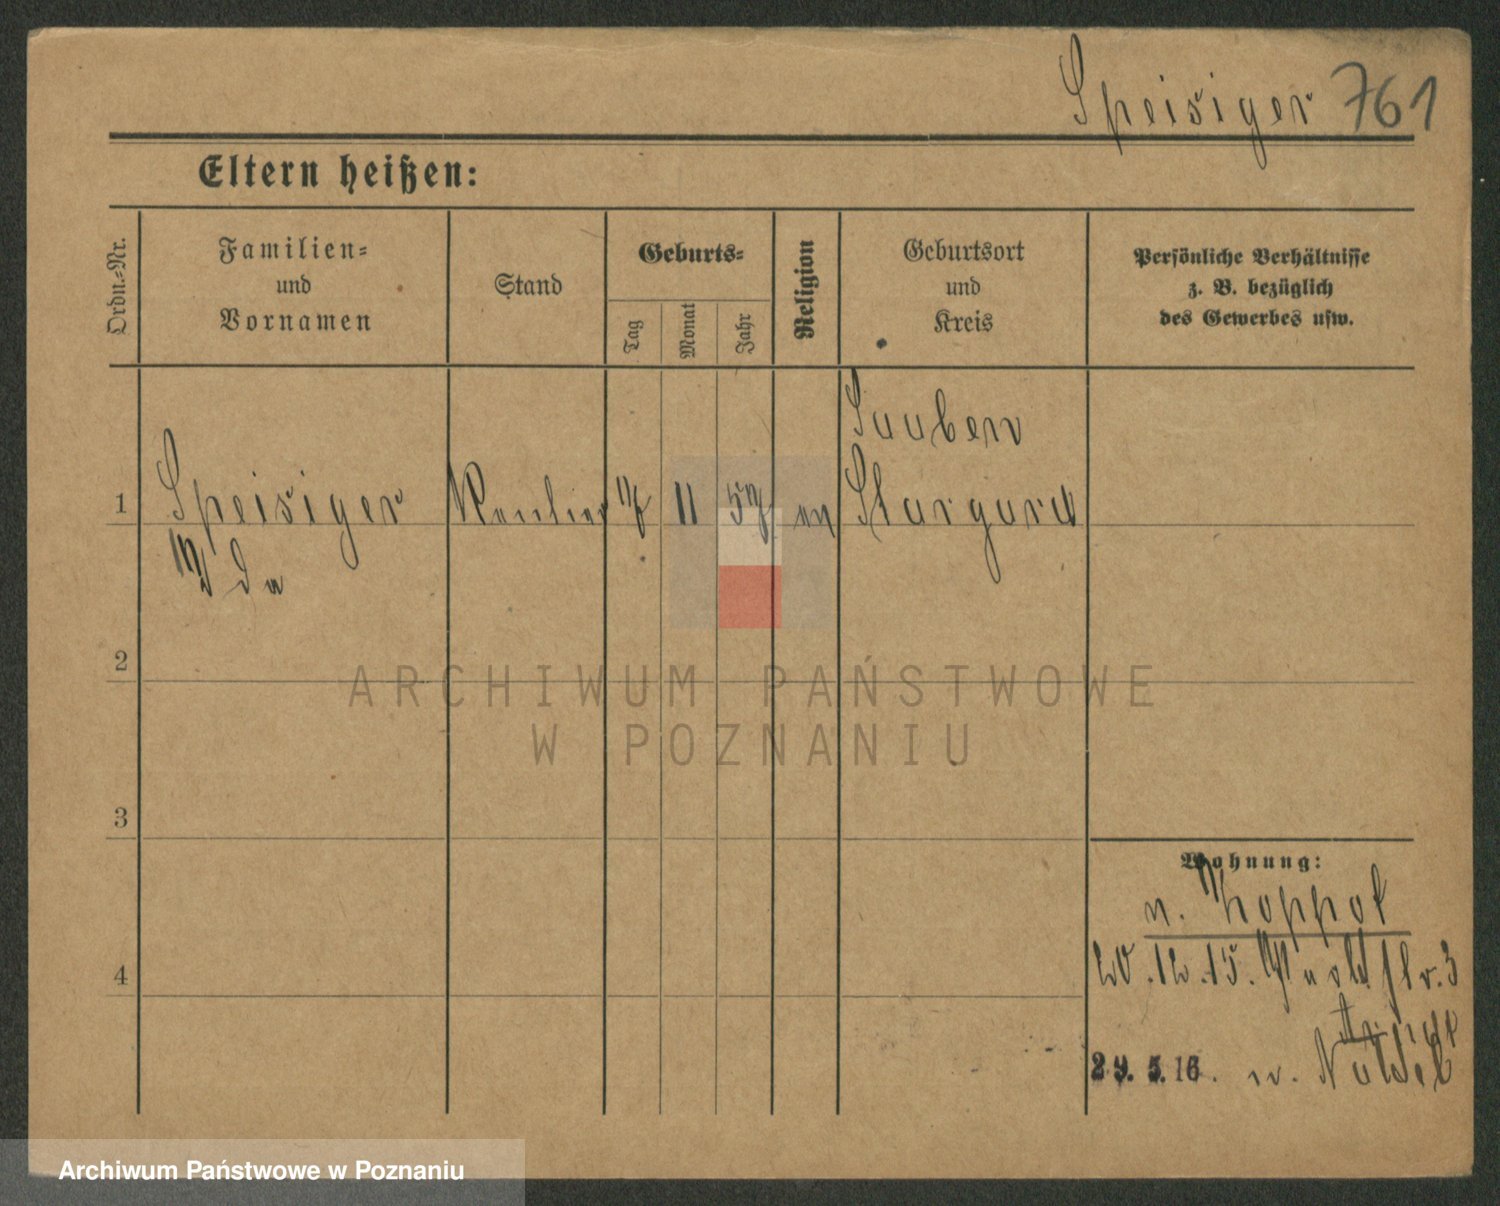 Speisiger 761
Eltern heißen:
Ordn.-Nr.
Familien-
und
Vornamen
Stand
Geburts-
Tag
Monat
Jahr
Religion
Geburtsort
und
Kreis
Persönliche Verhältnisse
z. B. bezüglich
des Gewerbes usw.
1
Speisiger
Ida
Rentier
11
57
ev
Stargard
2
3
4
Wohnung:
n. Zoppot
20.12.15.
3
29. 5. 16. n.
ARCHIWUM PAŃSTWOWE
W POZNANIU
Archiwum Państwowe w Poznaniu